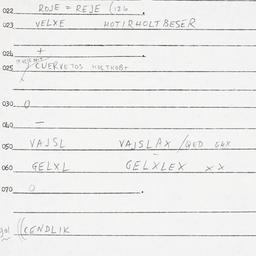 022 ROJE = REJE (126
023 VELXE HOTIRHOLTBESER
024 +
025 CUERVETOS HOLTHOBT
030 0
040 —
050 VAJSL VAJSLAX /QED GUX
060 GELXL GELXLEX XX
070 0
((CENDLIK